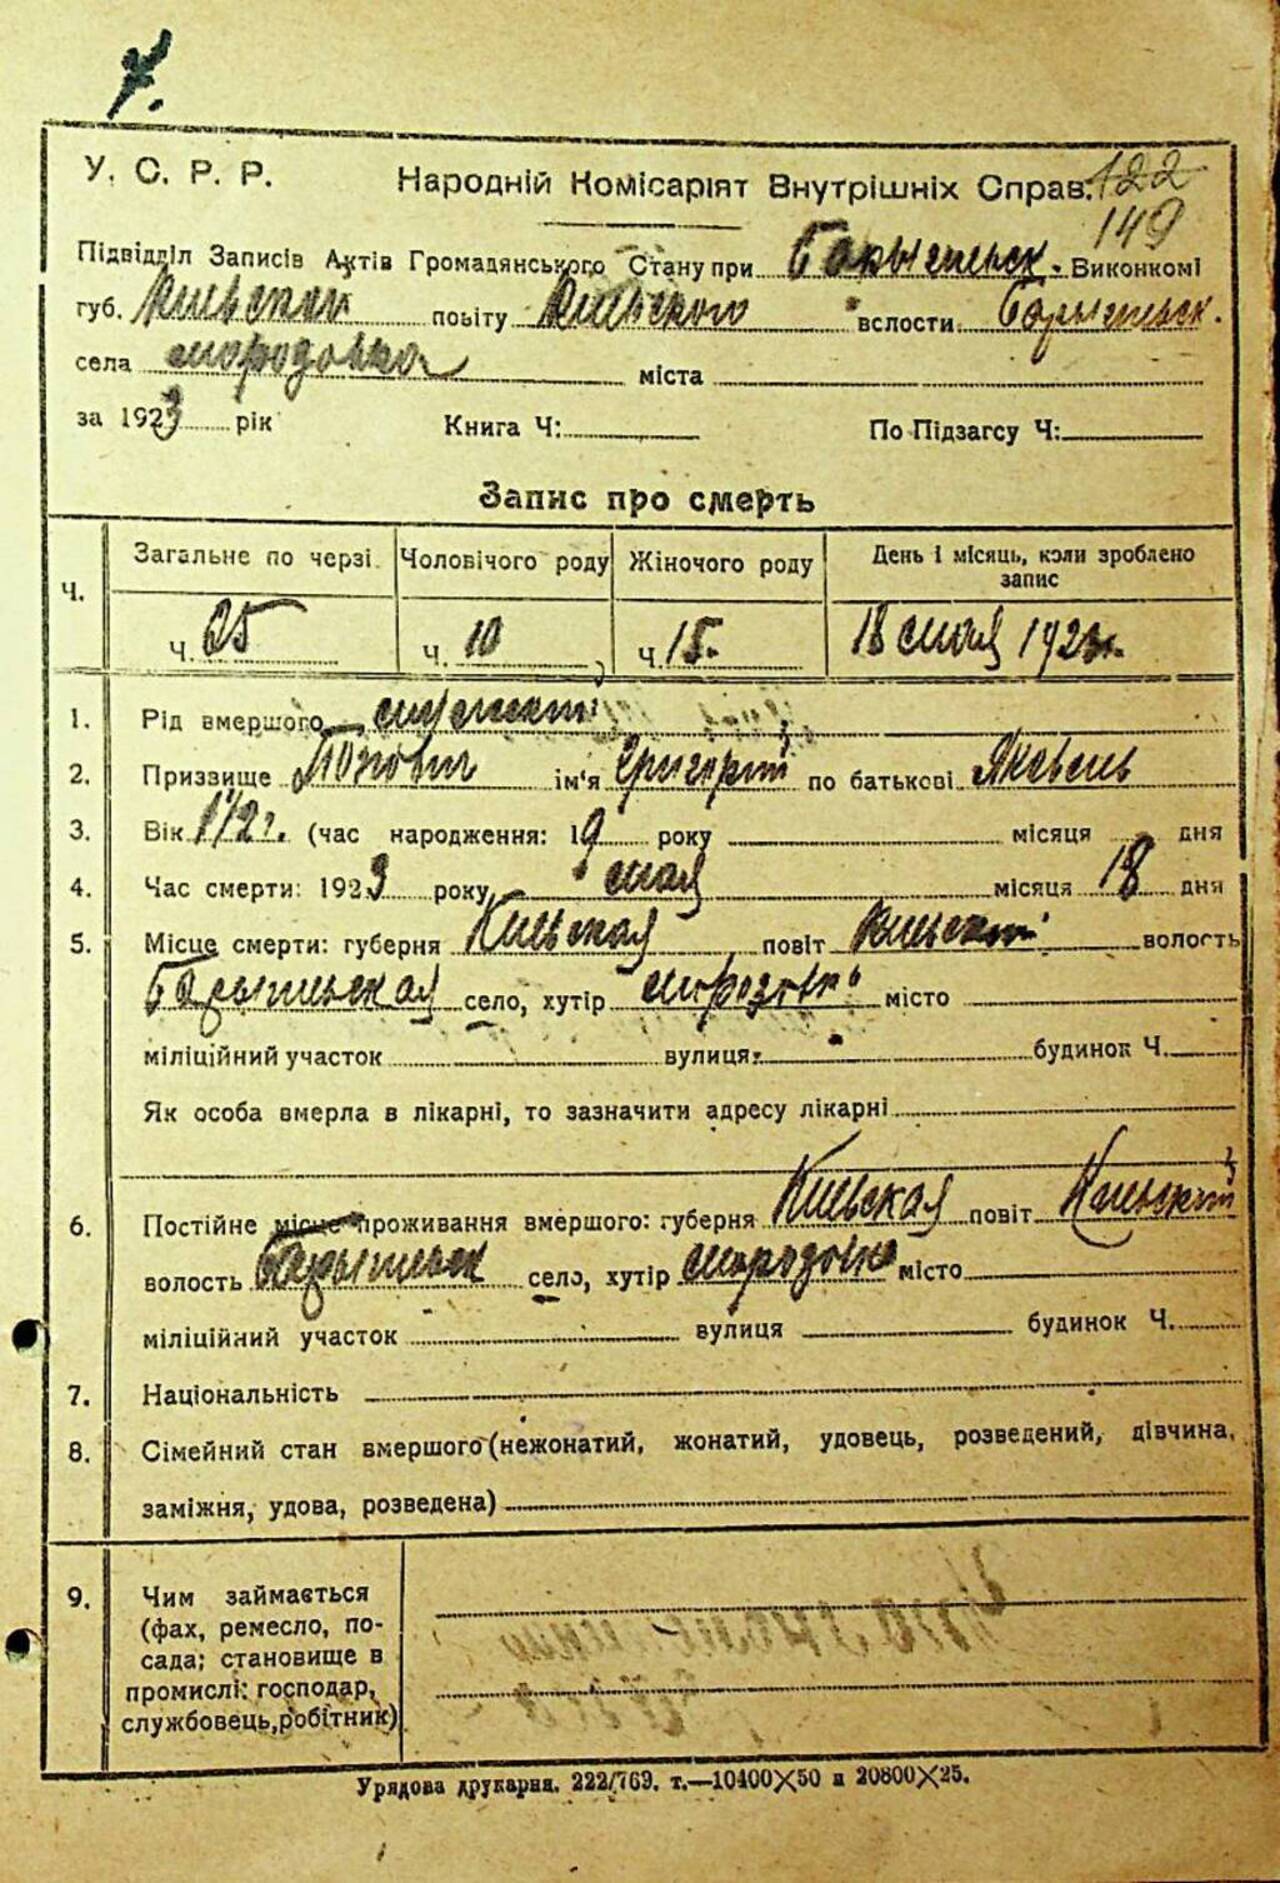 У. С. Р. Р. Народній Комісаріят Внутрішніх Справ. 122
149
Підвідділ Записів Актів Громадянського Стану при Барышпольск. Виконкомі
губ. Киевской повіту Киевского волости Барышпольск.
села Мордовка міста
за 1923 рік Книга Ч: По Підзагсу Ч:
Запис про смерть
Ч. Загальне по черзі. Чоловічого роду Жіночого роду День і місяць, коли зроблено запис
Ч. 25 Ч. 10 Ч. 15. 18 мая 1923 г.
1. Рід вмершого мужской
2. Призвище ім'я Григорій по батькові
3. Вік 1 1/2 г. (час народження: 19 року місяця дня
4. Час смерти: 1923 року мая місяця 18 дня
5. Місце смерти: губерня Киевская повіт Киевский волость
село, хутір місто
міліційний участок вулиця: будинок Ч.
Як особа вмерла в лікарні, то зазначити адресу лікарні
6. Постійне місце проживання вмершого: губерня Киевская повіт Киевский
волость село, хутір місто
міліційний участок вулиця будинок Ч.
7. Національність
8. Сімейний стан вмершого (нежонатий, жонатий, удовець, розведений, дівчина,
заміжня, удова, розведена)
9. Чим займається
(фах, ремесло, по-
сада; становище в
промислі: господар,
службовець, робітник)
Урядова друкарня. 222/769. т.—10400×50 и 20800×25.